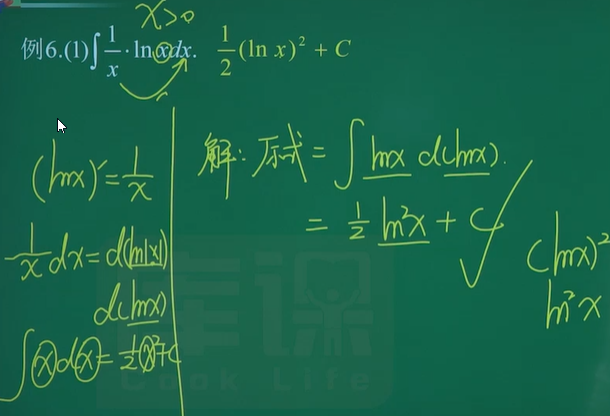 x>0
例6.(1)∫ 1/x · ln xdx. 1/2 (ln x)² + C
(lnx)' = 1/x
1/x dx = d(ln|x|)
d(lnx)
∫ⓧdⓧ = 1/2 ⓧ² + C
解: 原式 = ∫ lnx d(lnx).
= 1/2 ln²x + C
(lnx)²
ln²x
库课
Cook Life